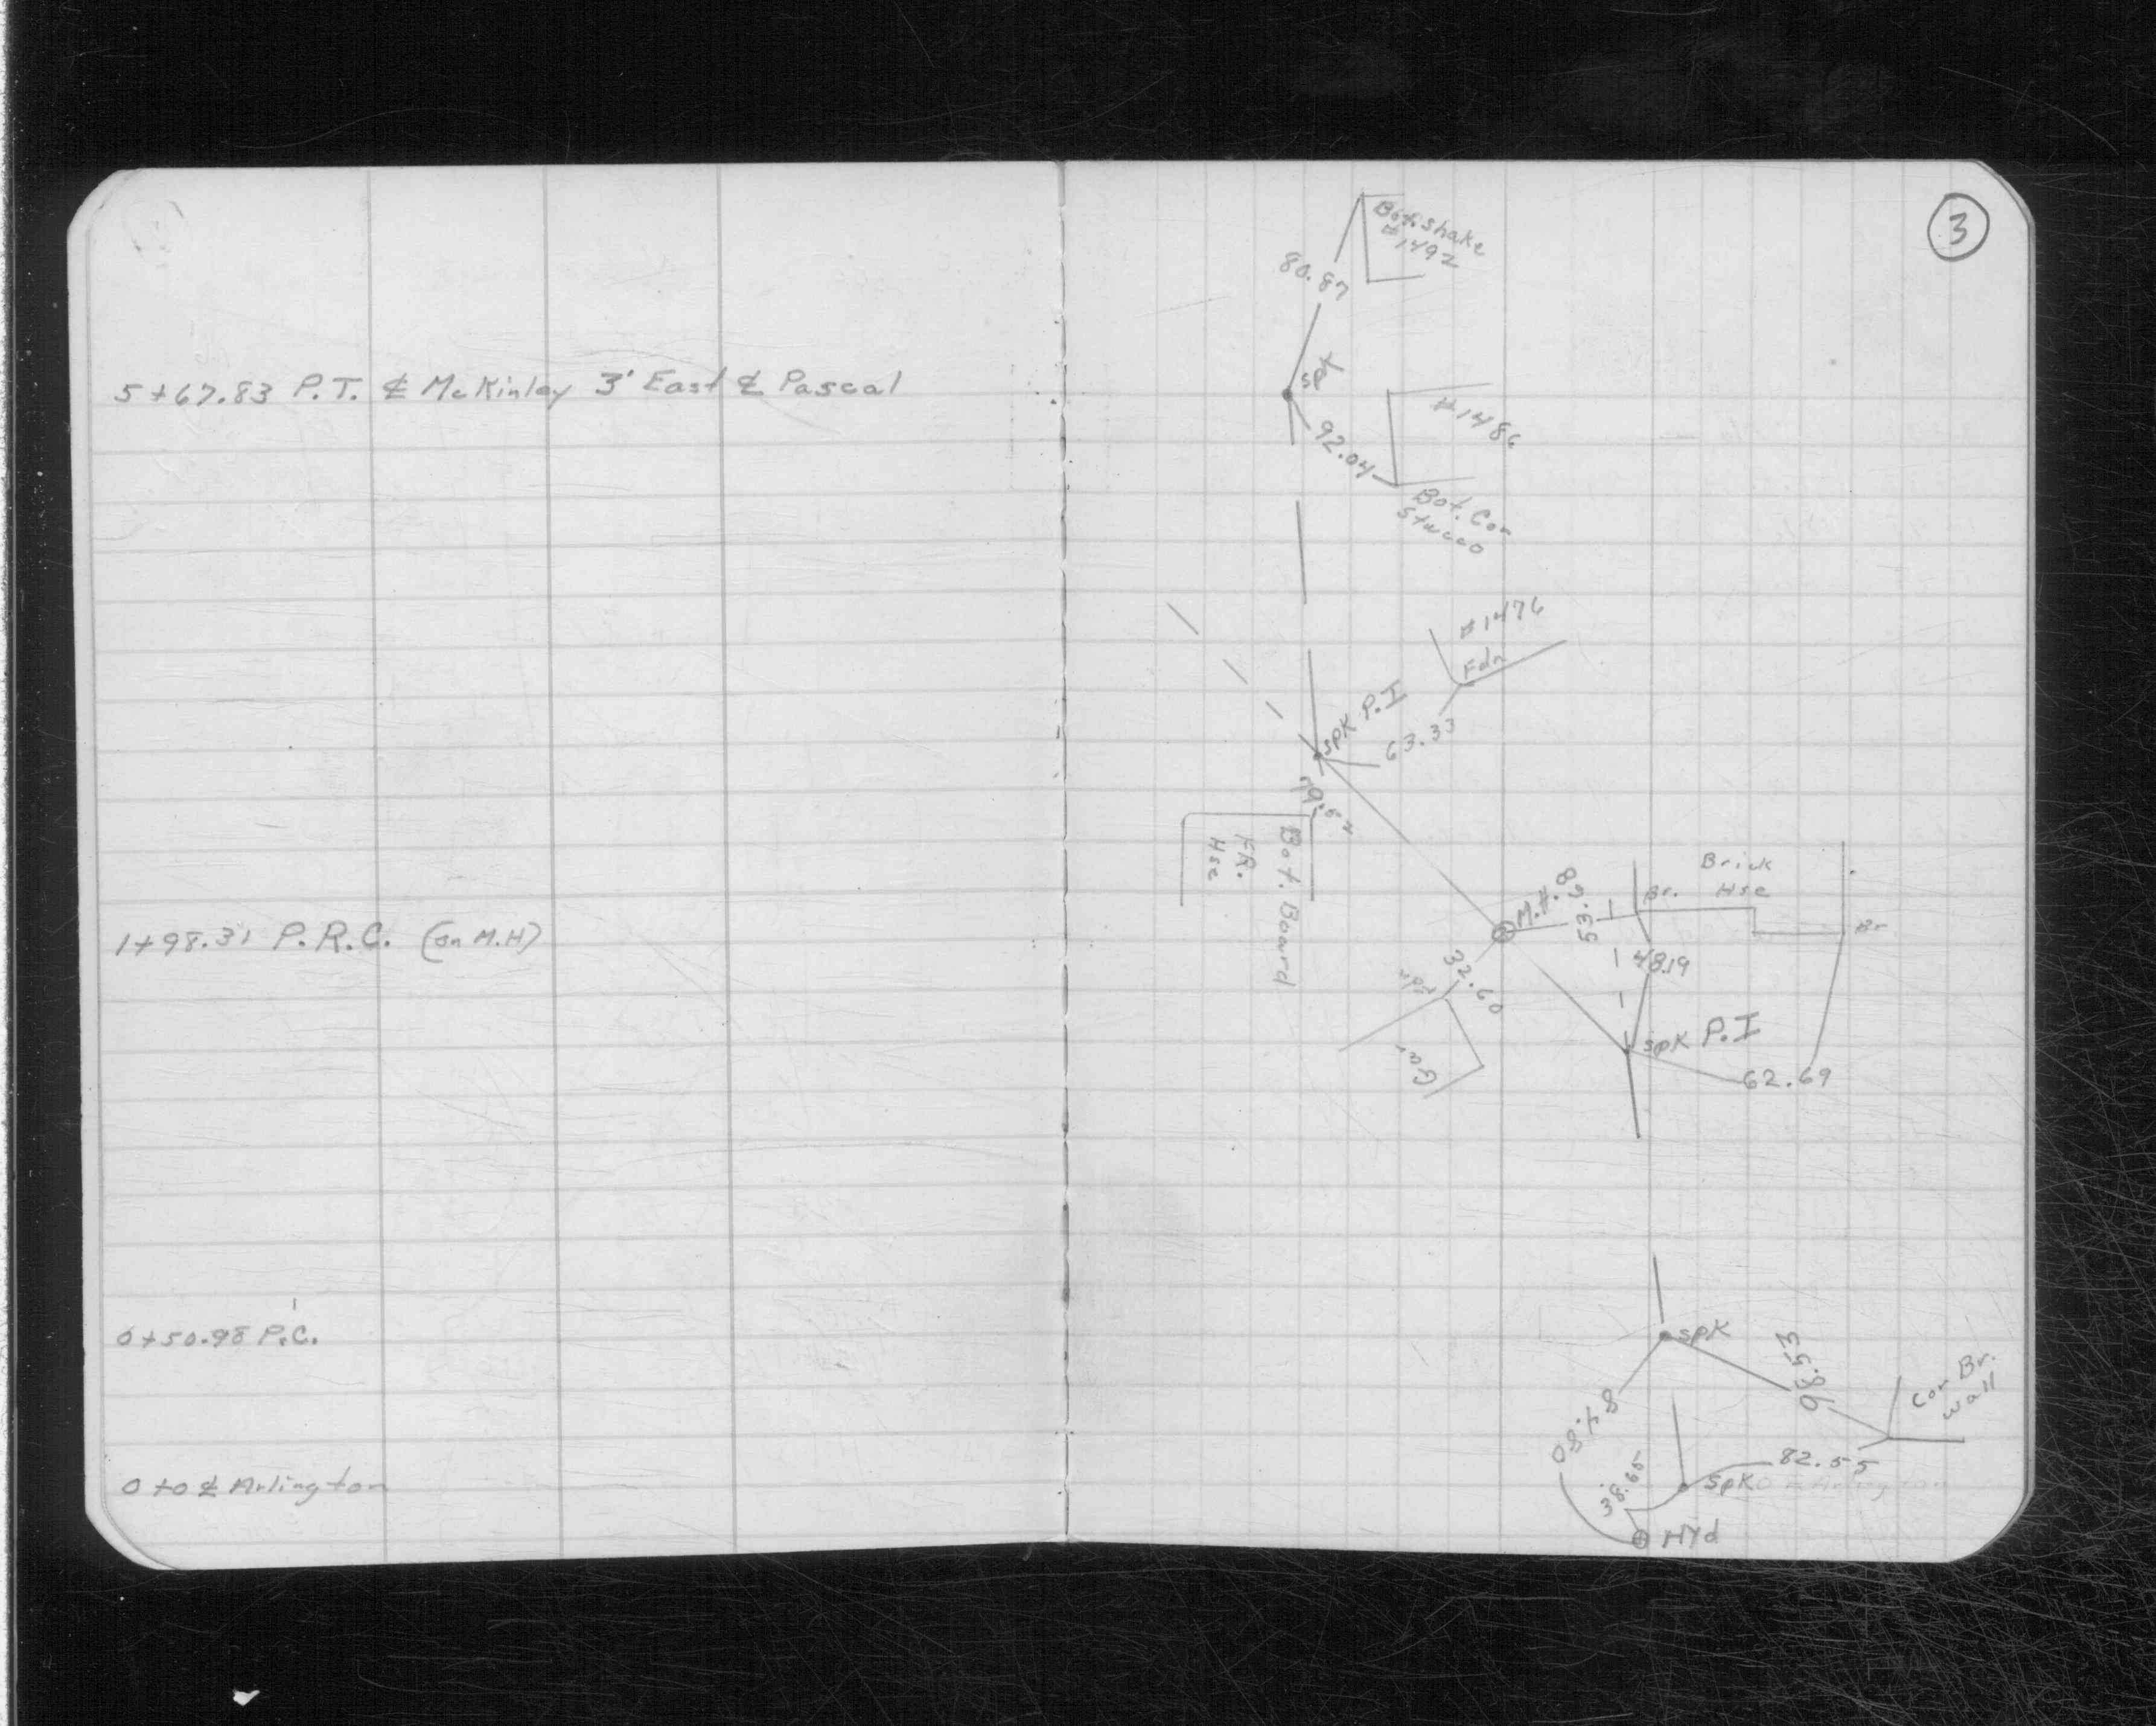 5+67.83 P.T. ℄ McKinley 3' East ℄ Pascal
1+98.31 P.R.C. (on M.H)
0+50.98 P.C.
0+0 ℄ Arlington
3
Bot. Shake
#1492
80.87
Spk
#1486
92.04
Bot. Cor
Stucco
#1476
Fdn
Spk P.I
63.33
79.62
Bot. Board
FR.
Hse
Brick
Hse
Br.
Br
M.H.
53.68
48.19
32.60
Fdn
Gar
Spk P.I
62.69
Spk
98.53
Cor Br.
Wall
84.80
38.65
82.55
Spk
Hyd